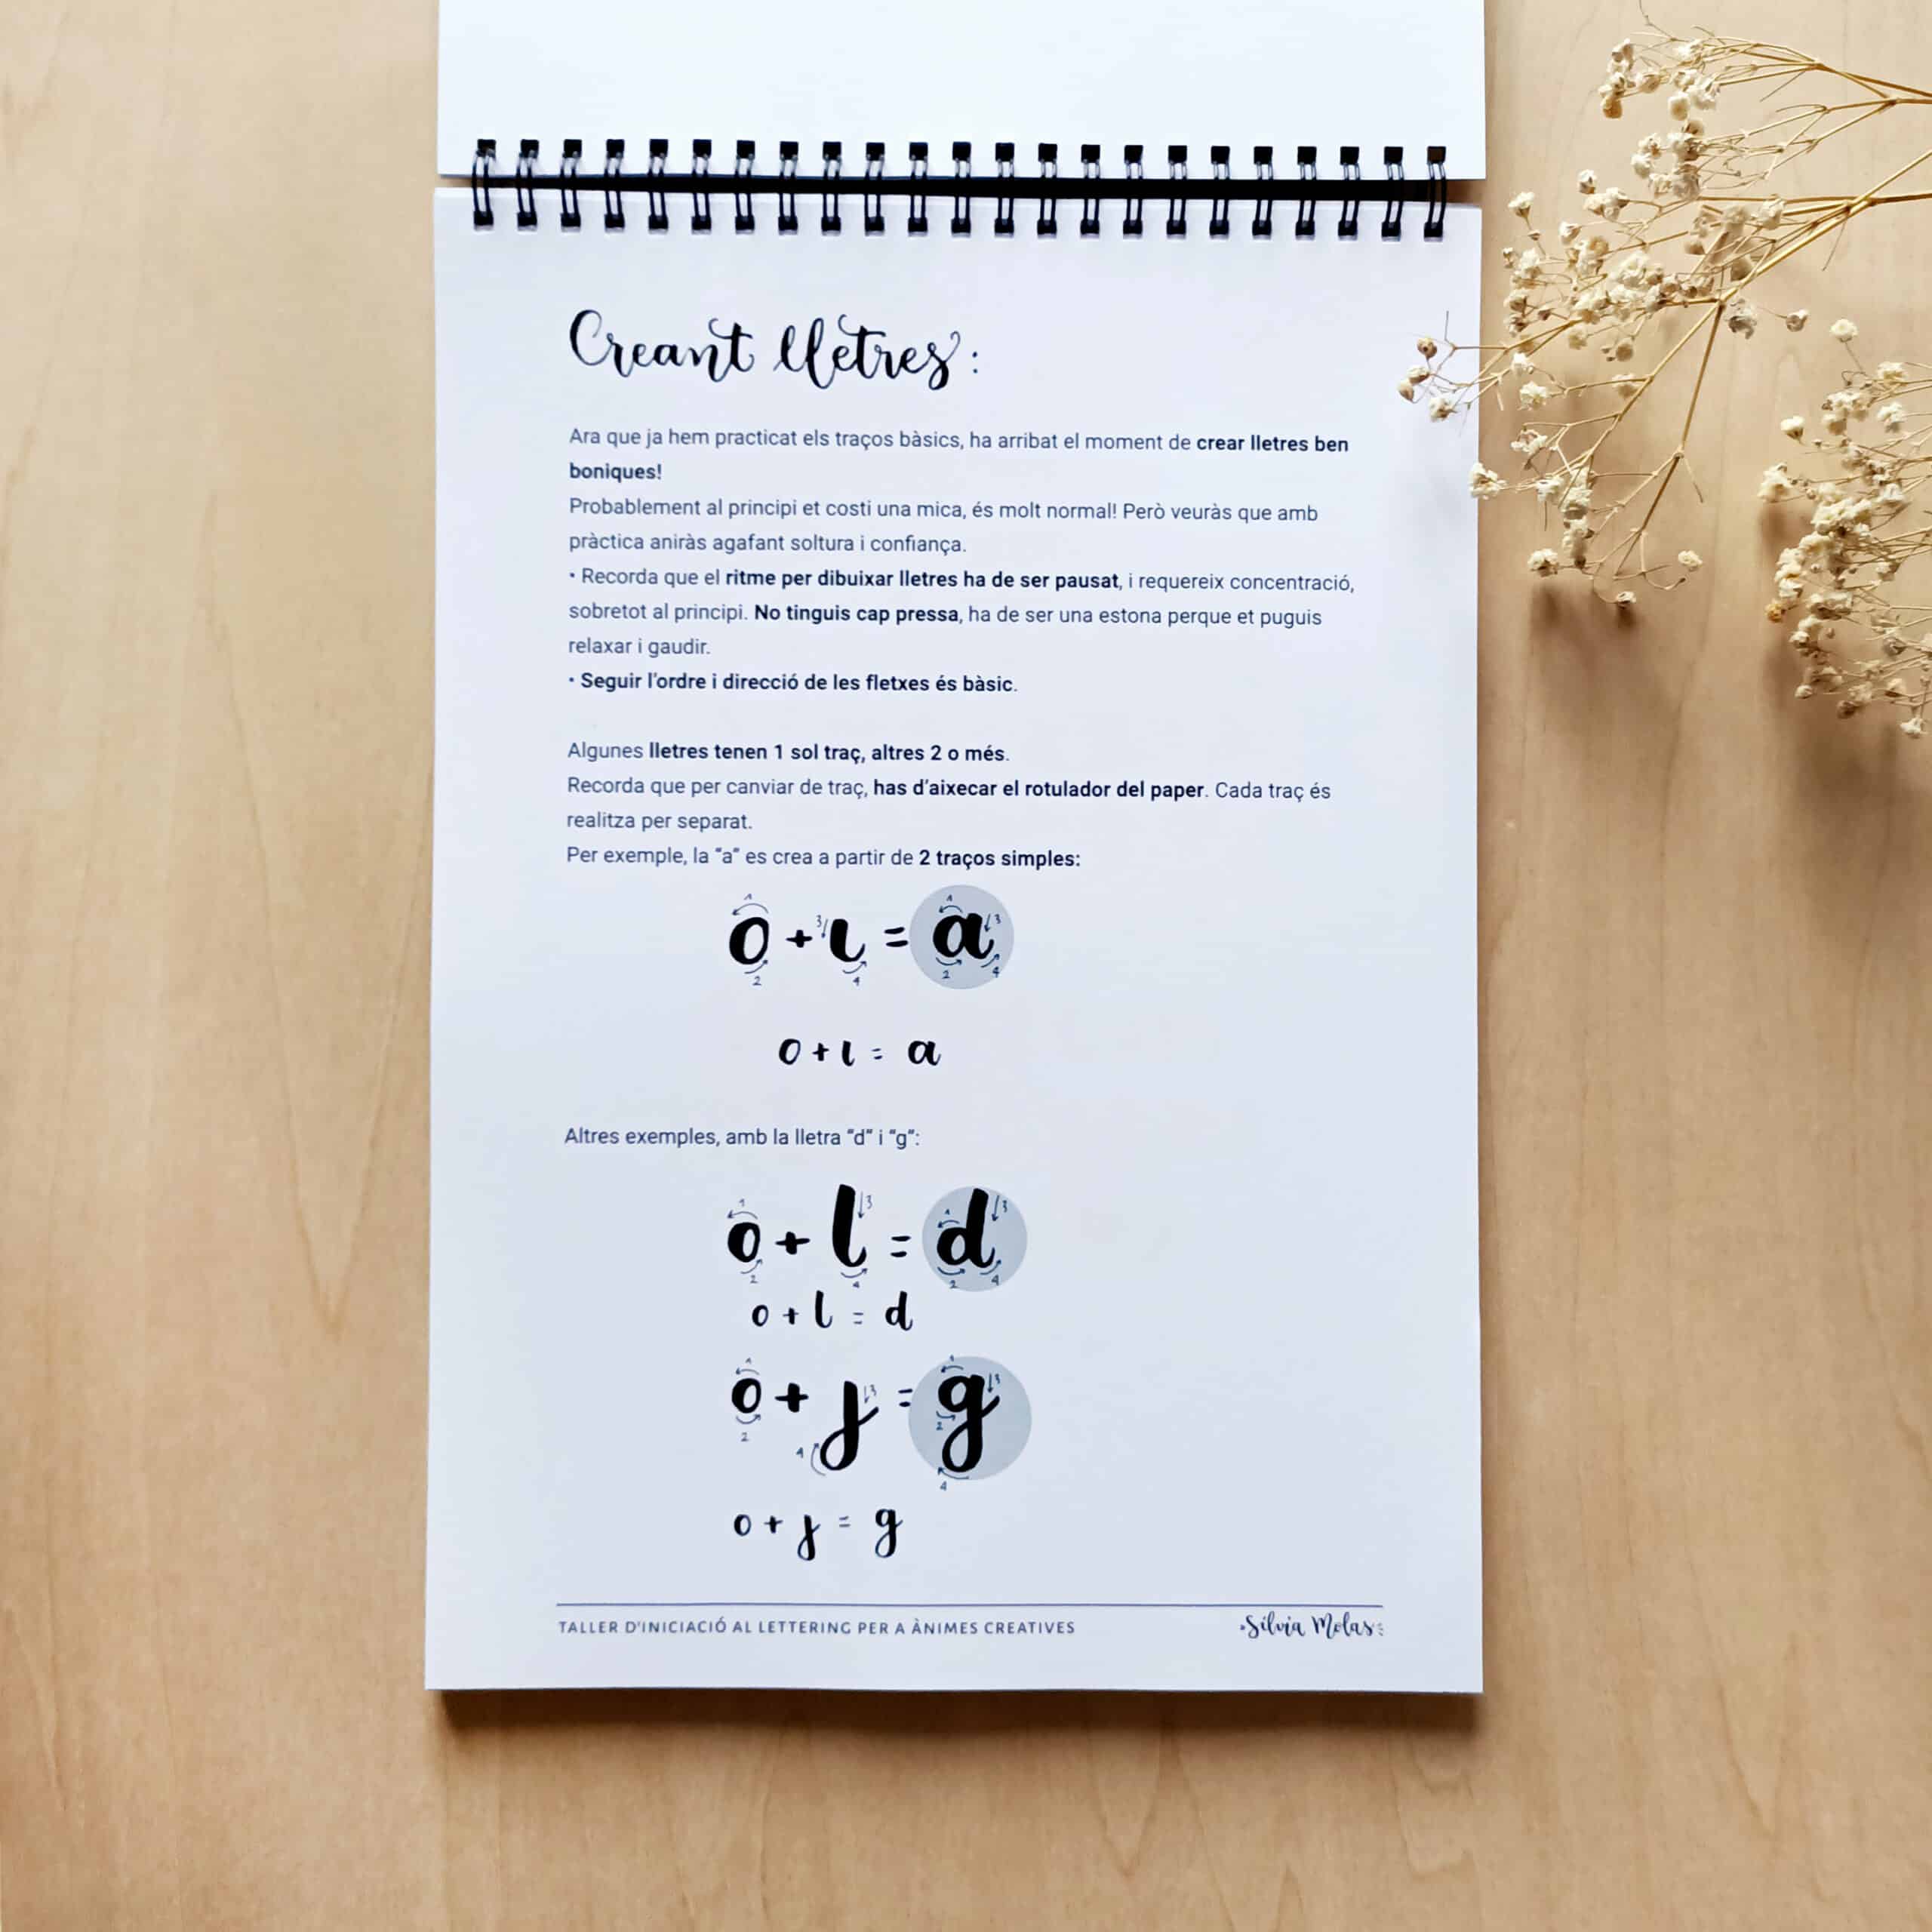 Creant lletres:
Ara que ja hem practicat els traços bàsics, ha arribat el moment de crear lletres ben
boniques!
Probablement al principi et costi una mica, és molt normal! Però veuràs que amb
pràctica aniràs agafant soltura i confiança.
• Recorda que el ritme per dibuixar lletres ha de ser pausat, i requereix concentració,
sobretot al principi. No tinguis cap pressa, ha de ser una estona perque et puguis
relaxar i gaudir.
• Seguir l'ordre i direcció de les fletxes és bàsic.
Algunes lletres tenen 1 sol traç, altres 2 o més.
Recorda que per canviar de traç, has d'aixecar el rotulador del paper. Cada traç és
realitza per separat.
Per exemple, la "a" es crea a partir de 2 traços simples:
1 3 1 3
o + ι = a
2 4 2 4
o + ι = a
Altres exemples, amb la lletra "d" i "g":
1 3 1 3
o + l = d
2 4 2 4
o + l = d
1 3 1 3
o + j = g
2 4 2 4
o + j = g
TALLER D'INICIACIÓ AL LETTERING PER A ÀNIMES CREATIVES
Sílvia Molas